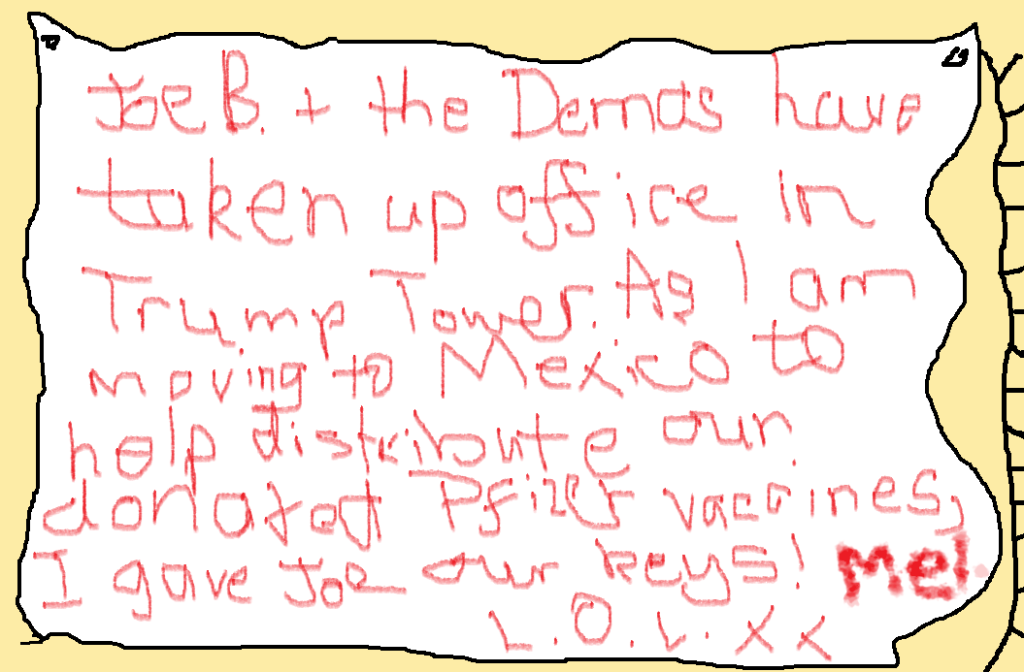 Joe B. + the Demos have
taken up office in
Trump Tower. As I am
moving to Mexico to
help distribute our
donated Pfizer vaccines,
I gave Joe our keys! Mel.
L.O.L. xx